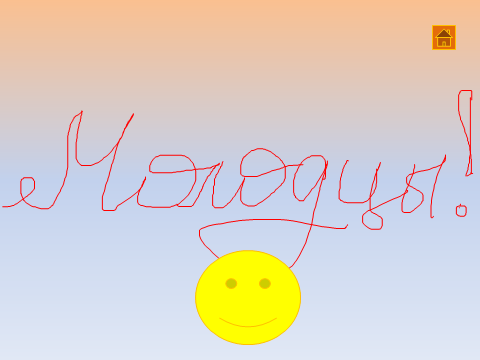 Молодцы!